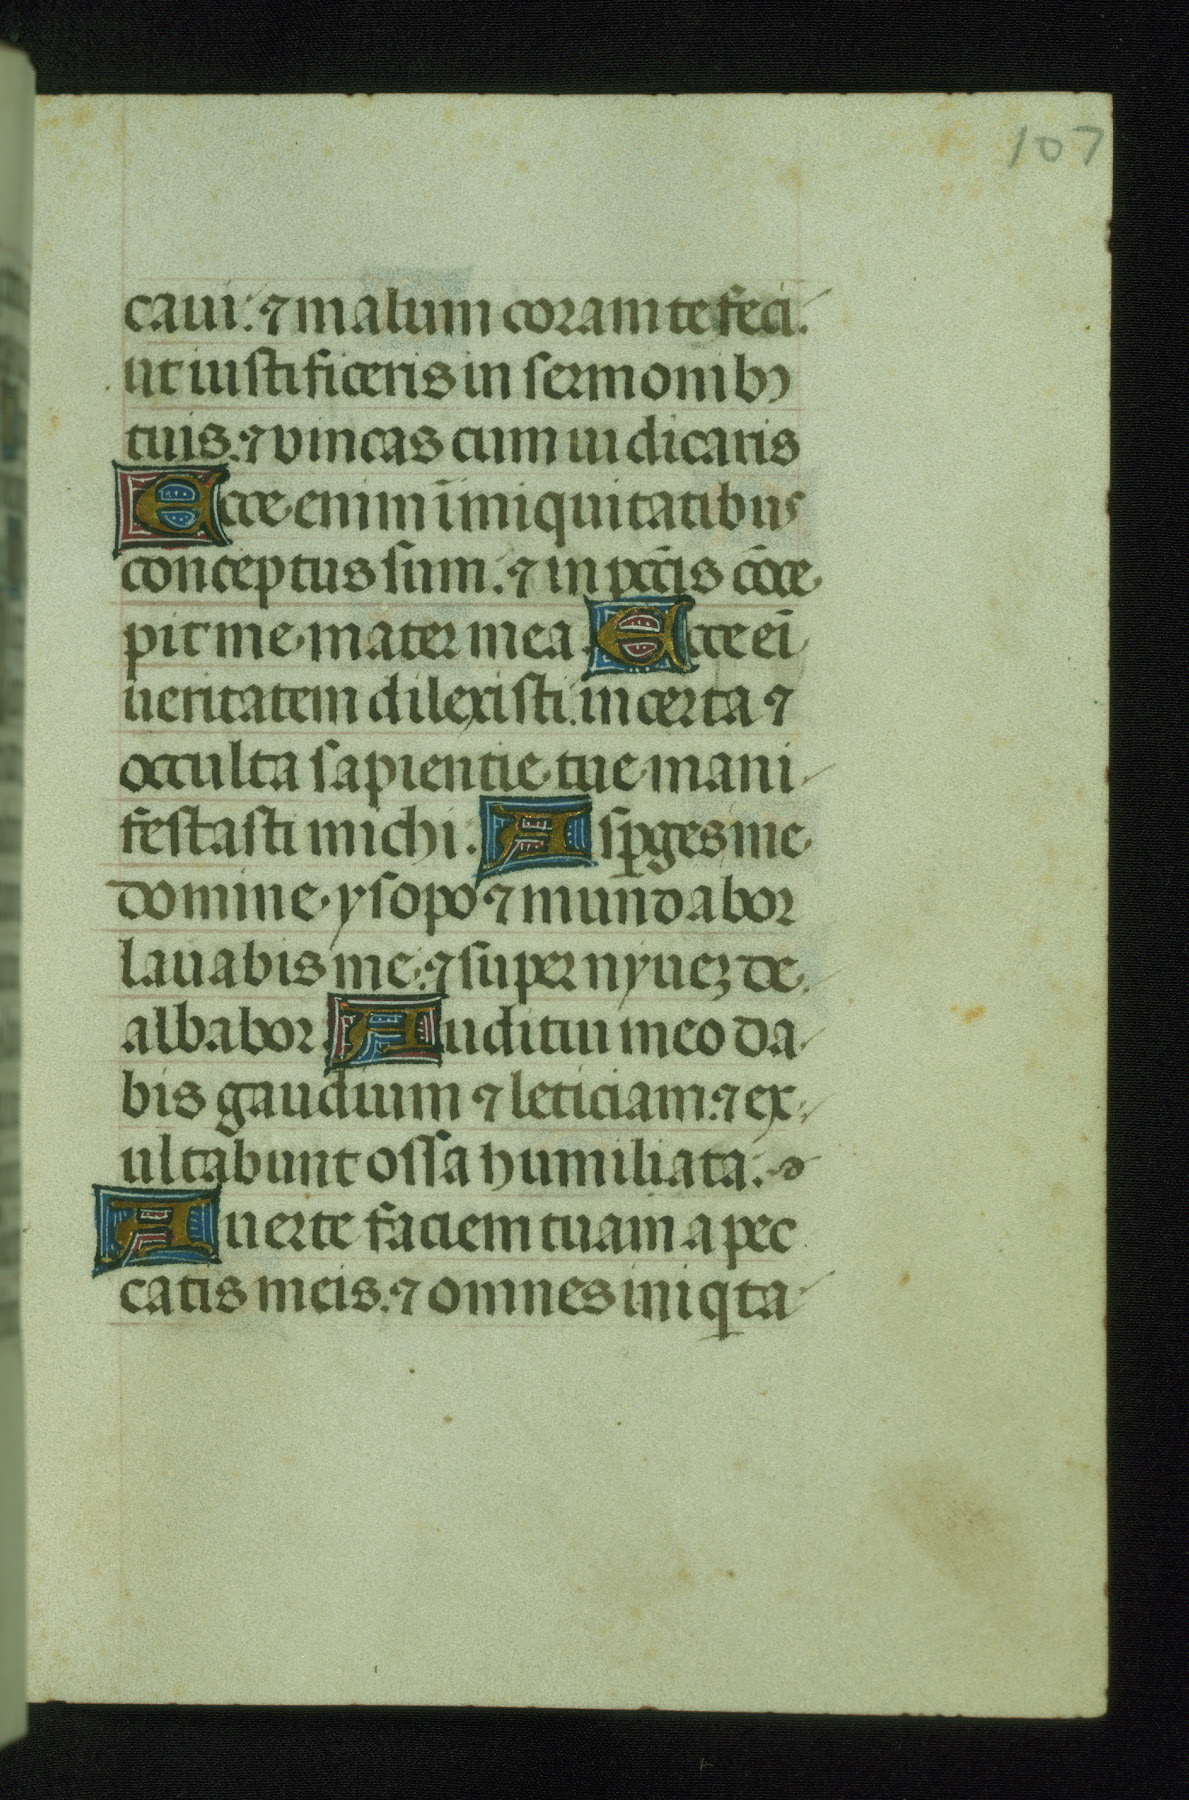 107
caui: ⁊ malum coram te feci.
ut iustificeris in sermonibꝫ
tuis. ⁊ vincas cum iudicaris
Ecce enim in̄iquitatibus
conceptus sum. ⁊ in pctīs cōce
pit me mater mea. Ecce eī
ueritatem dilexisti. incerta ⁊
occulta sapientie tue mani
festasti michi. Aspꝑges me
domine ysopo ⁊ mundabor
lauabis me. ⁊ super nyueꝫ de
albabor Auditui meo da
bis gaudium ⁊ leticiam: ⁊ ex
ultabunt ossa humiliata.
Auerte faciem tuam a pec
catis meis. ⁊ omnes iniqta